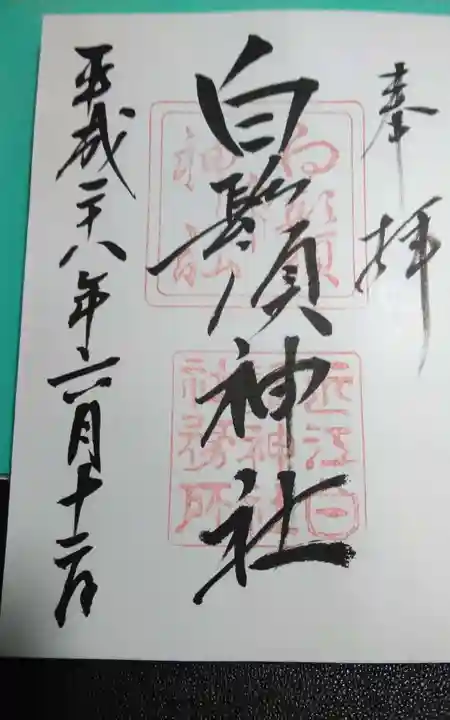 奉拝
白鬚神社
平成二十八年六月十二日
白鬚神社
近江白鬚神社社務所